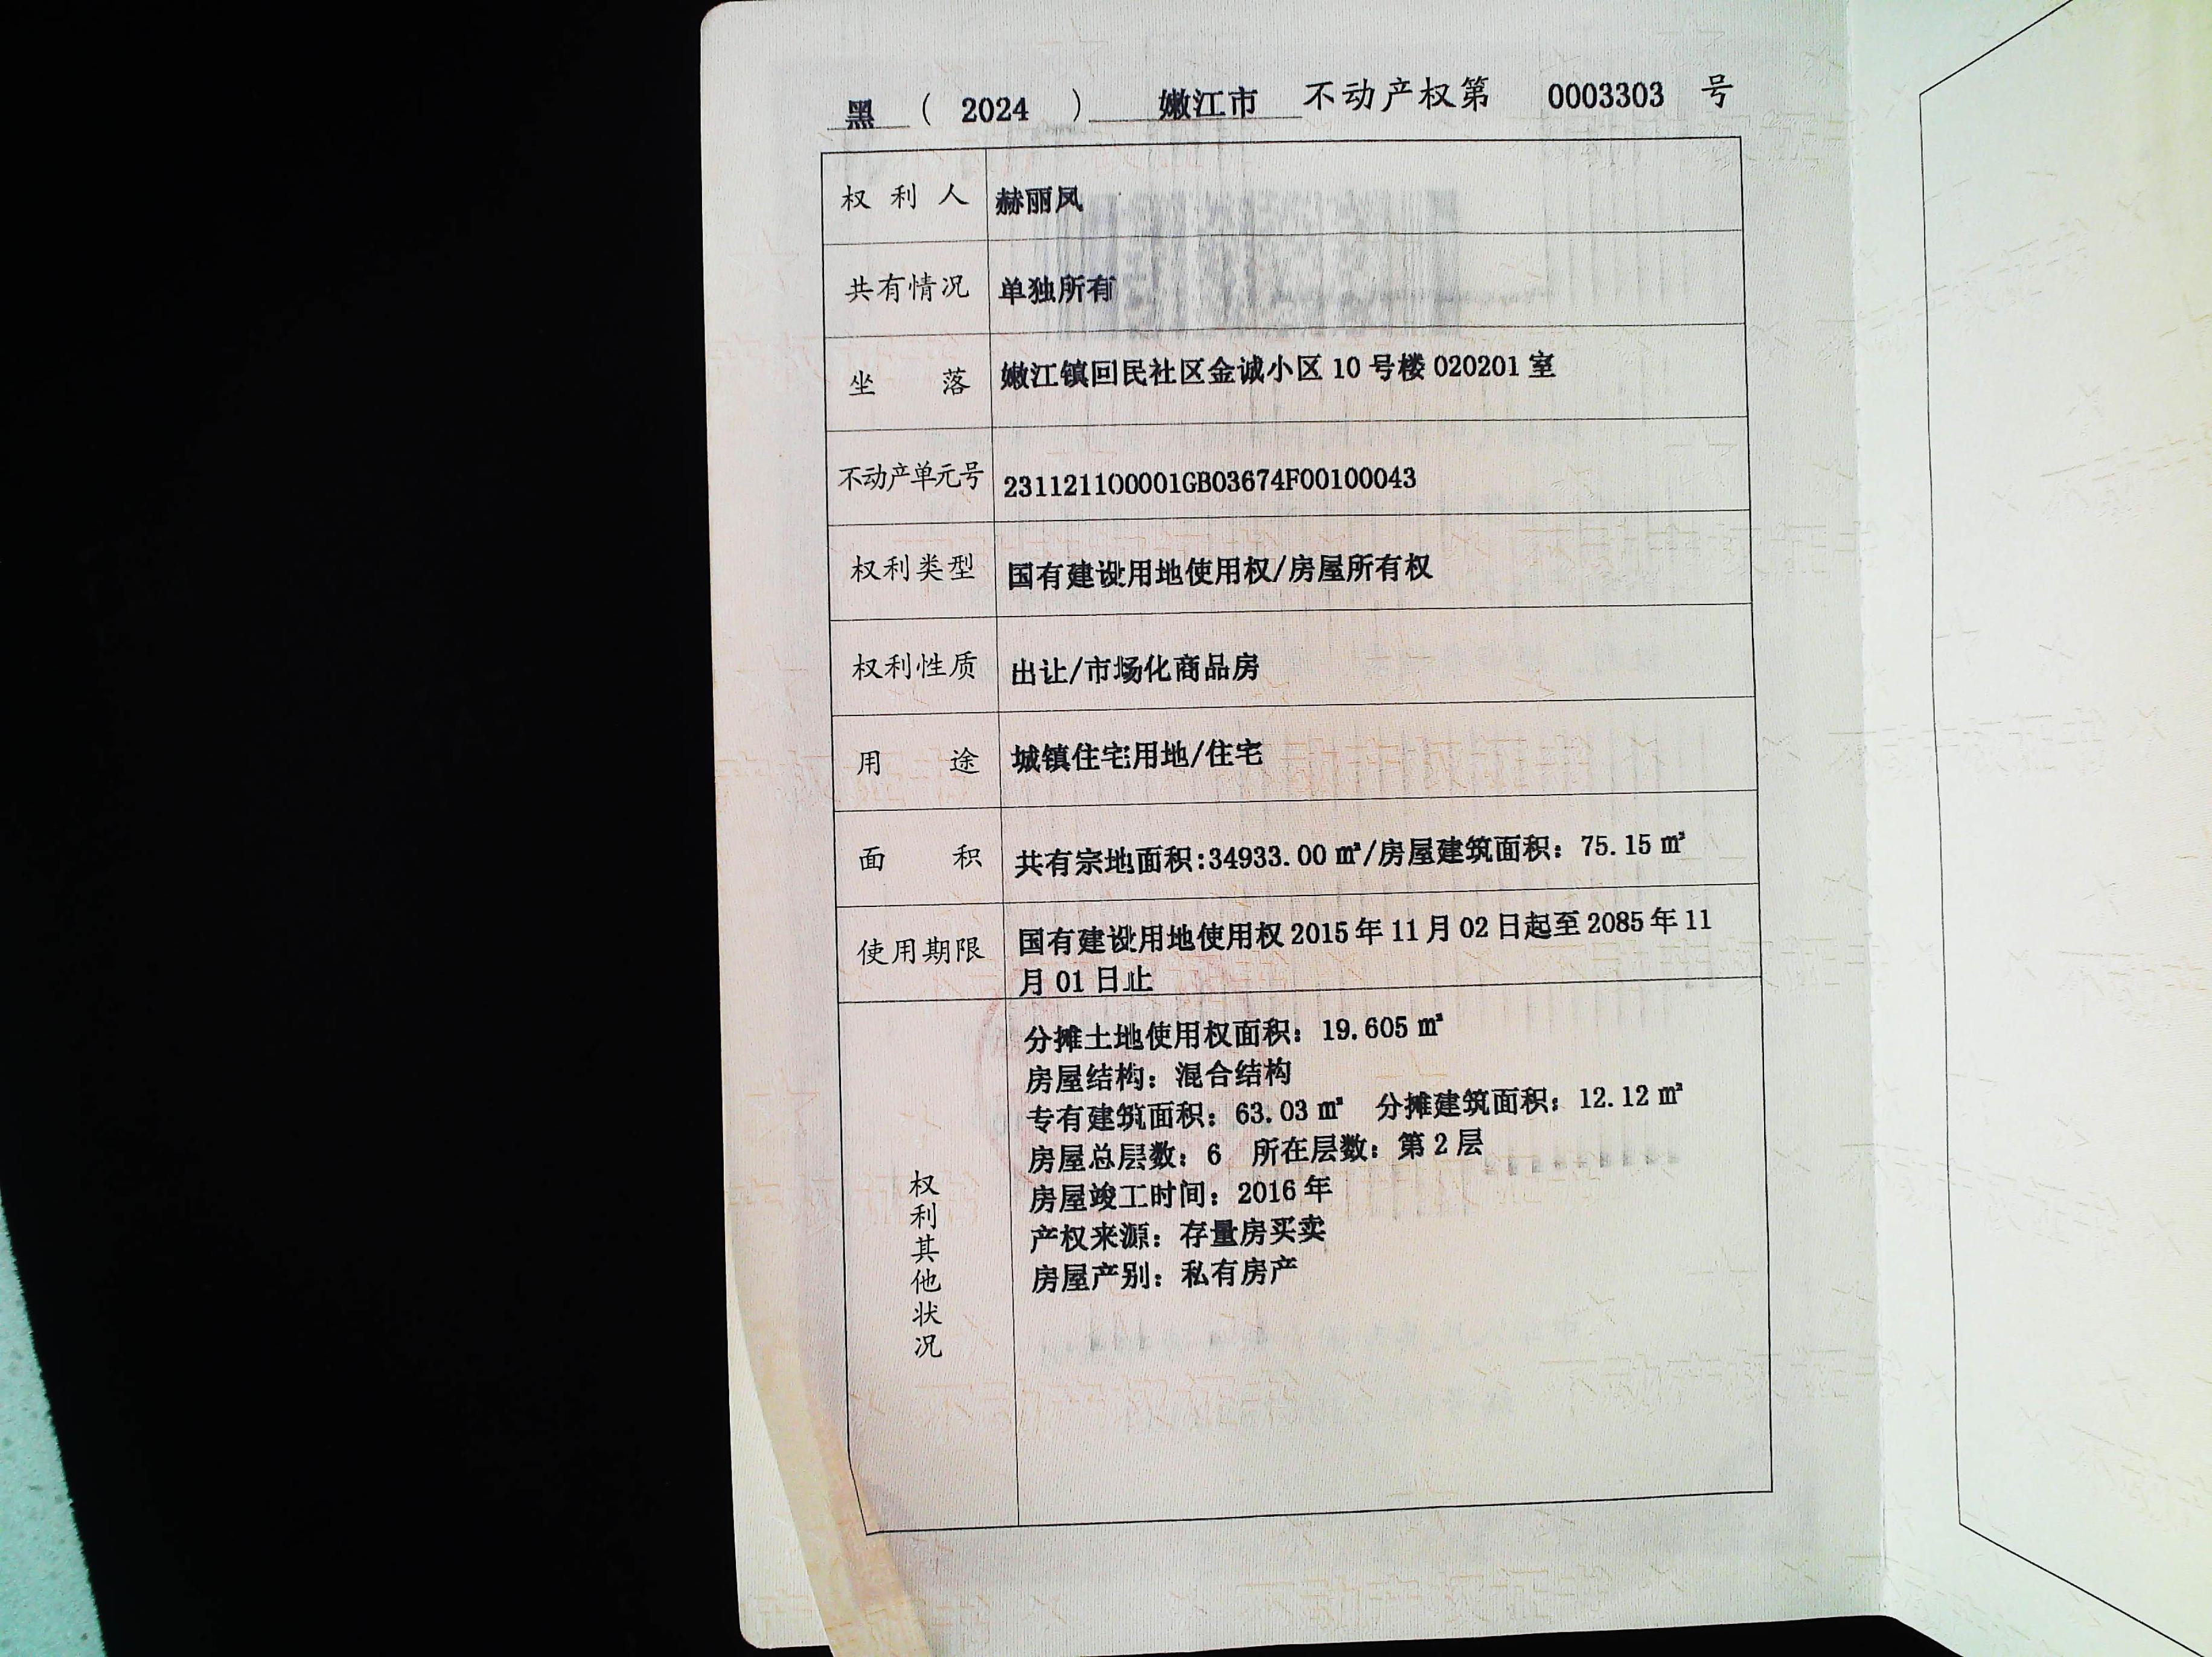 黑 （ 2024 ） 嫩江市 不动产权第 0003303 号
权利人 赫丽凤
共有情况 单独所有
坐落 嫩江镇回民社区金诚小区 10 号楼 020201 室
不动产单元号 231121100001GB03674F00100043
权利类型 国有建设用地使用权/房屋所有权
权利性质 出让/市场化商品房
用途 城镇住宅用地/住宅
面积 共有宗地面积:34933.00 ㎡/房屋建筑面积：75.15 ㎡
使用期限 国有建设用地使用权 2015 年 11 月 02 日起至 2085 年 11
月 01 日止
权利其他状况
分摊土地使用权面积：19.605 ㎡
房屋结构：混合结构
专有建筑面积：63.03 ㎡ 分摊建筑面积：12.12 ㎡
房屋总层数：6 所在层数：第 2 层
房屋竣工时间：2016 年
产权来源：存量房买卖
房屋产别：私有房产